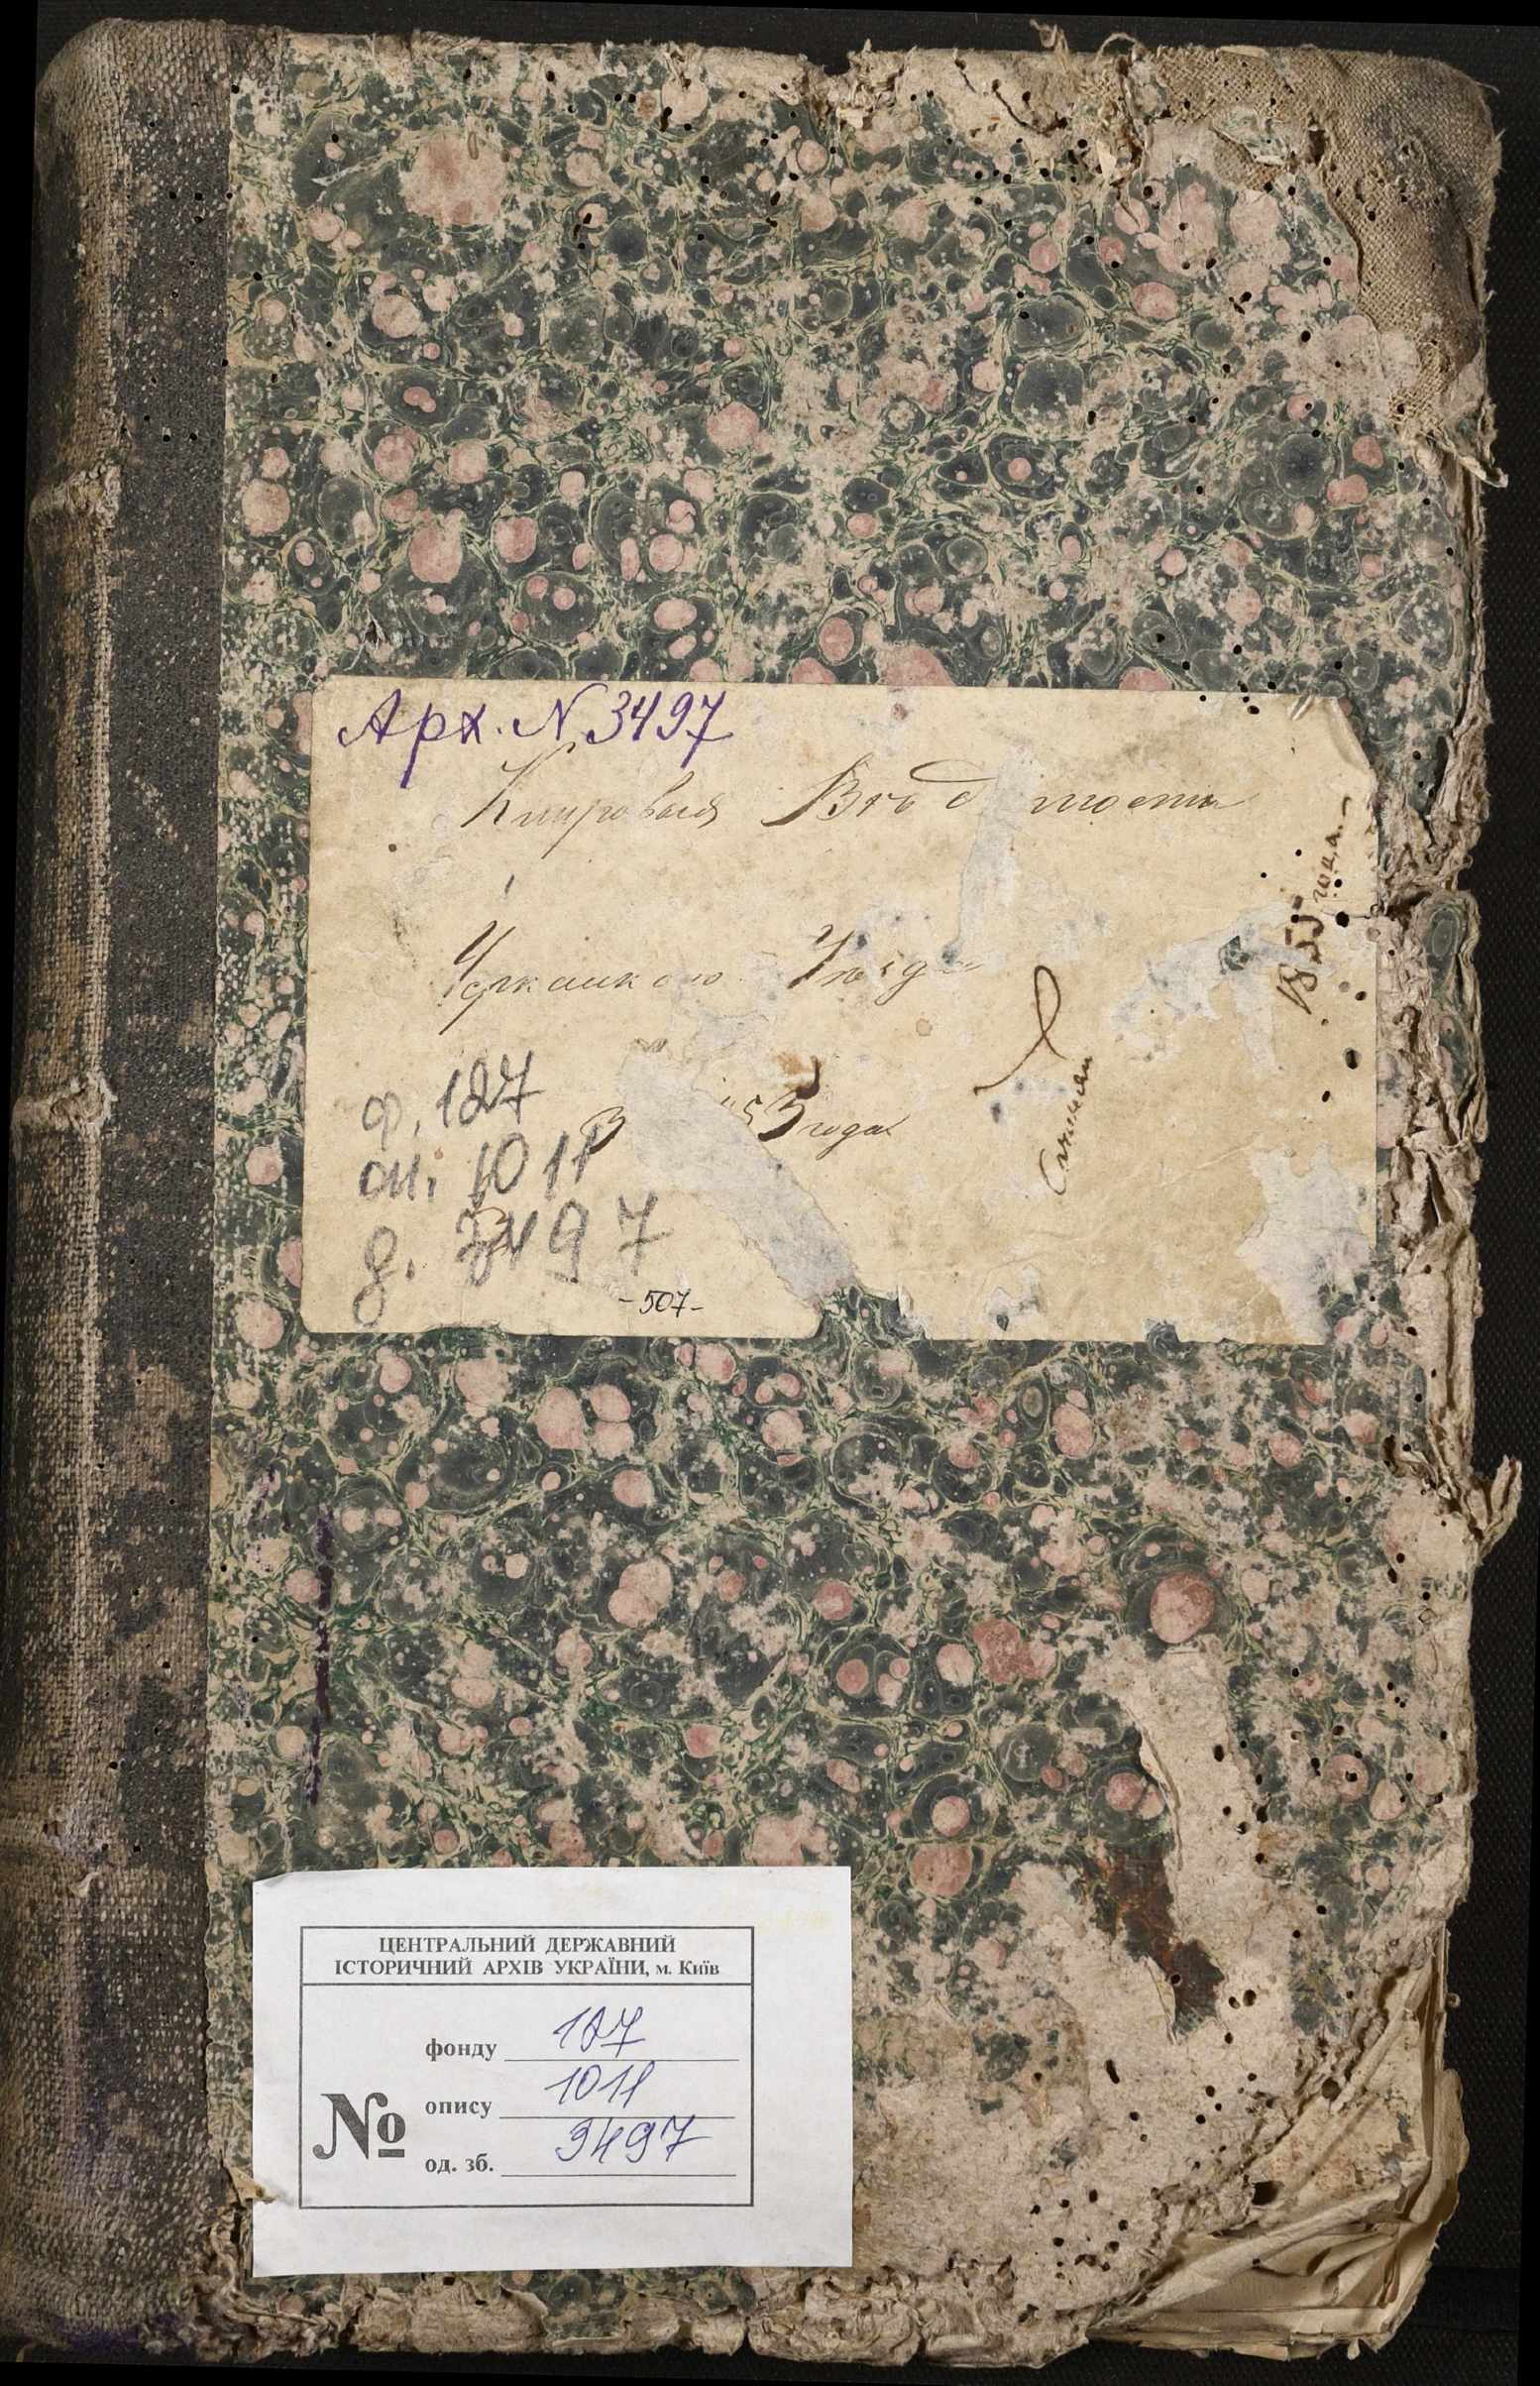 Арх. N 3497
Клировыя Вѣд мости
Черкаскаго Уѣзда
За 53 года
1853 года.
ф. 127
оп. 1011
д. 3497
-507-
ЦЕНТРАЛЬНИЙ ДЕРЖАВНИЙ
ІСТОРИЧНИЙ АРХІВ УКРАЇНИ, м. Київ
№
фонду 127
опису 1011
од. зб. 3497